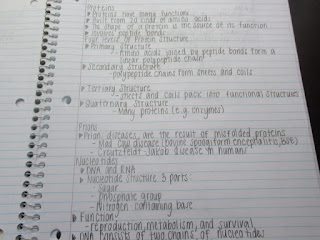 Proteins
▷ Proteins have many functions
▷ Built from 20 kinds of amino acids
▷ The shape of a protein is the source of its function
▷ Involves peptide bonds
Four levels of Protein Structure
▷ Primary Structure
- Amino acids joined by peptide bonds form a linear polypeptide chain
▷ Secondary Structure
- polypeptide chains form sheets and coils
▷ Tertiary Structure
- sheets and coils pack into functional structures
▷ Quaternary Structure
- Many proteins (e.g. enzymes)
Prions
▷ Prion diseases are the result of misfolded proteins
- Mad Cow disease (bovine spongiform encephalitis, BSE)
- Creutzfeldt-Jakob disease in humans
Nucleotides
▷ DNA and RNA
▷ Nucleotide Structure 3 parts:
- Sugar
- Phosphate group
- Nitrogen-containing base
▷ Function:
- reproduction, metabolism, and survival
▷ DNA consists of two chains of nucleotides